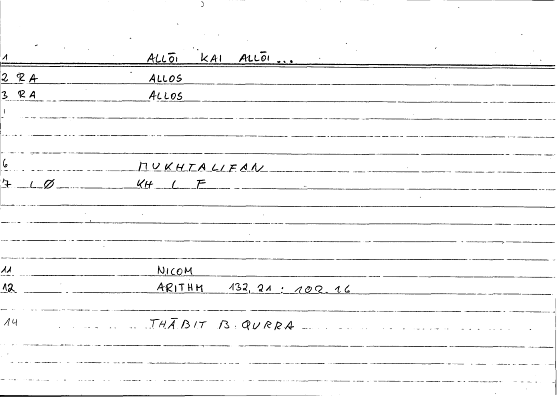 1 ALLŌI KAI ALLŌI...
2 RA ALLOS
3 RA ALLOS
6 MUKHTALIFAN
7 LØ KH L F
11 NICOM
12 ARITHM 132,21 : 102.16
14 THĀBIT B. QURRA